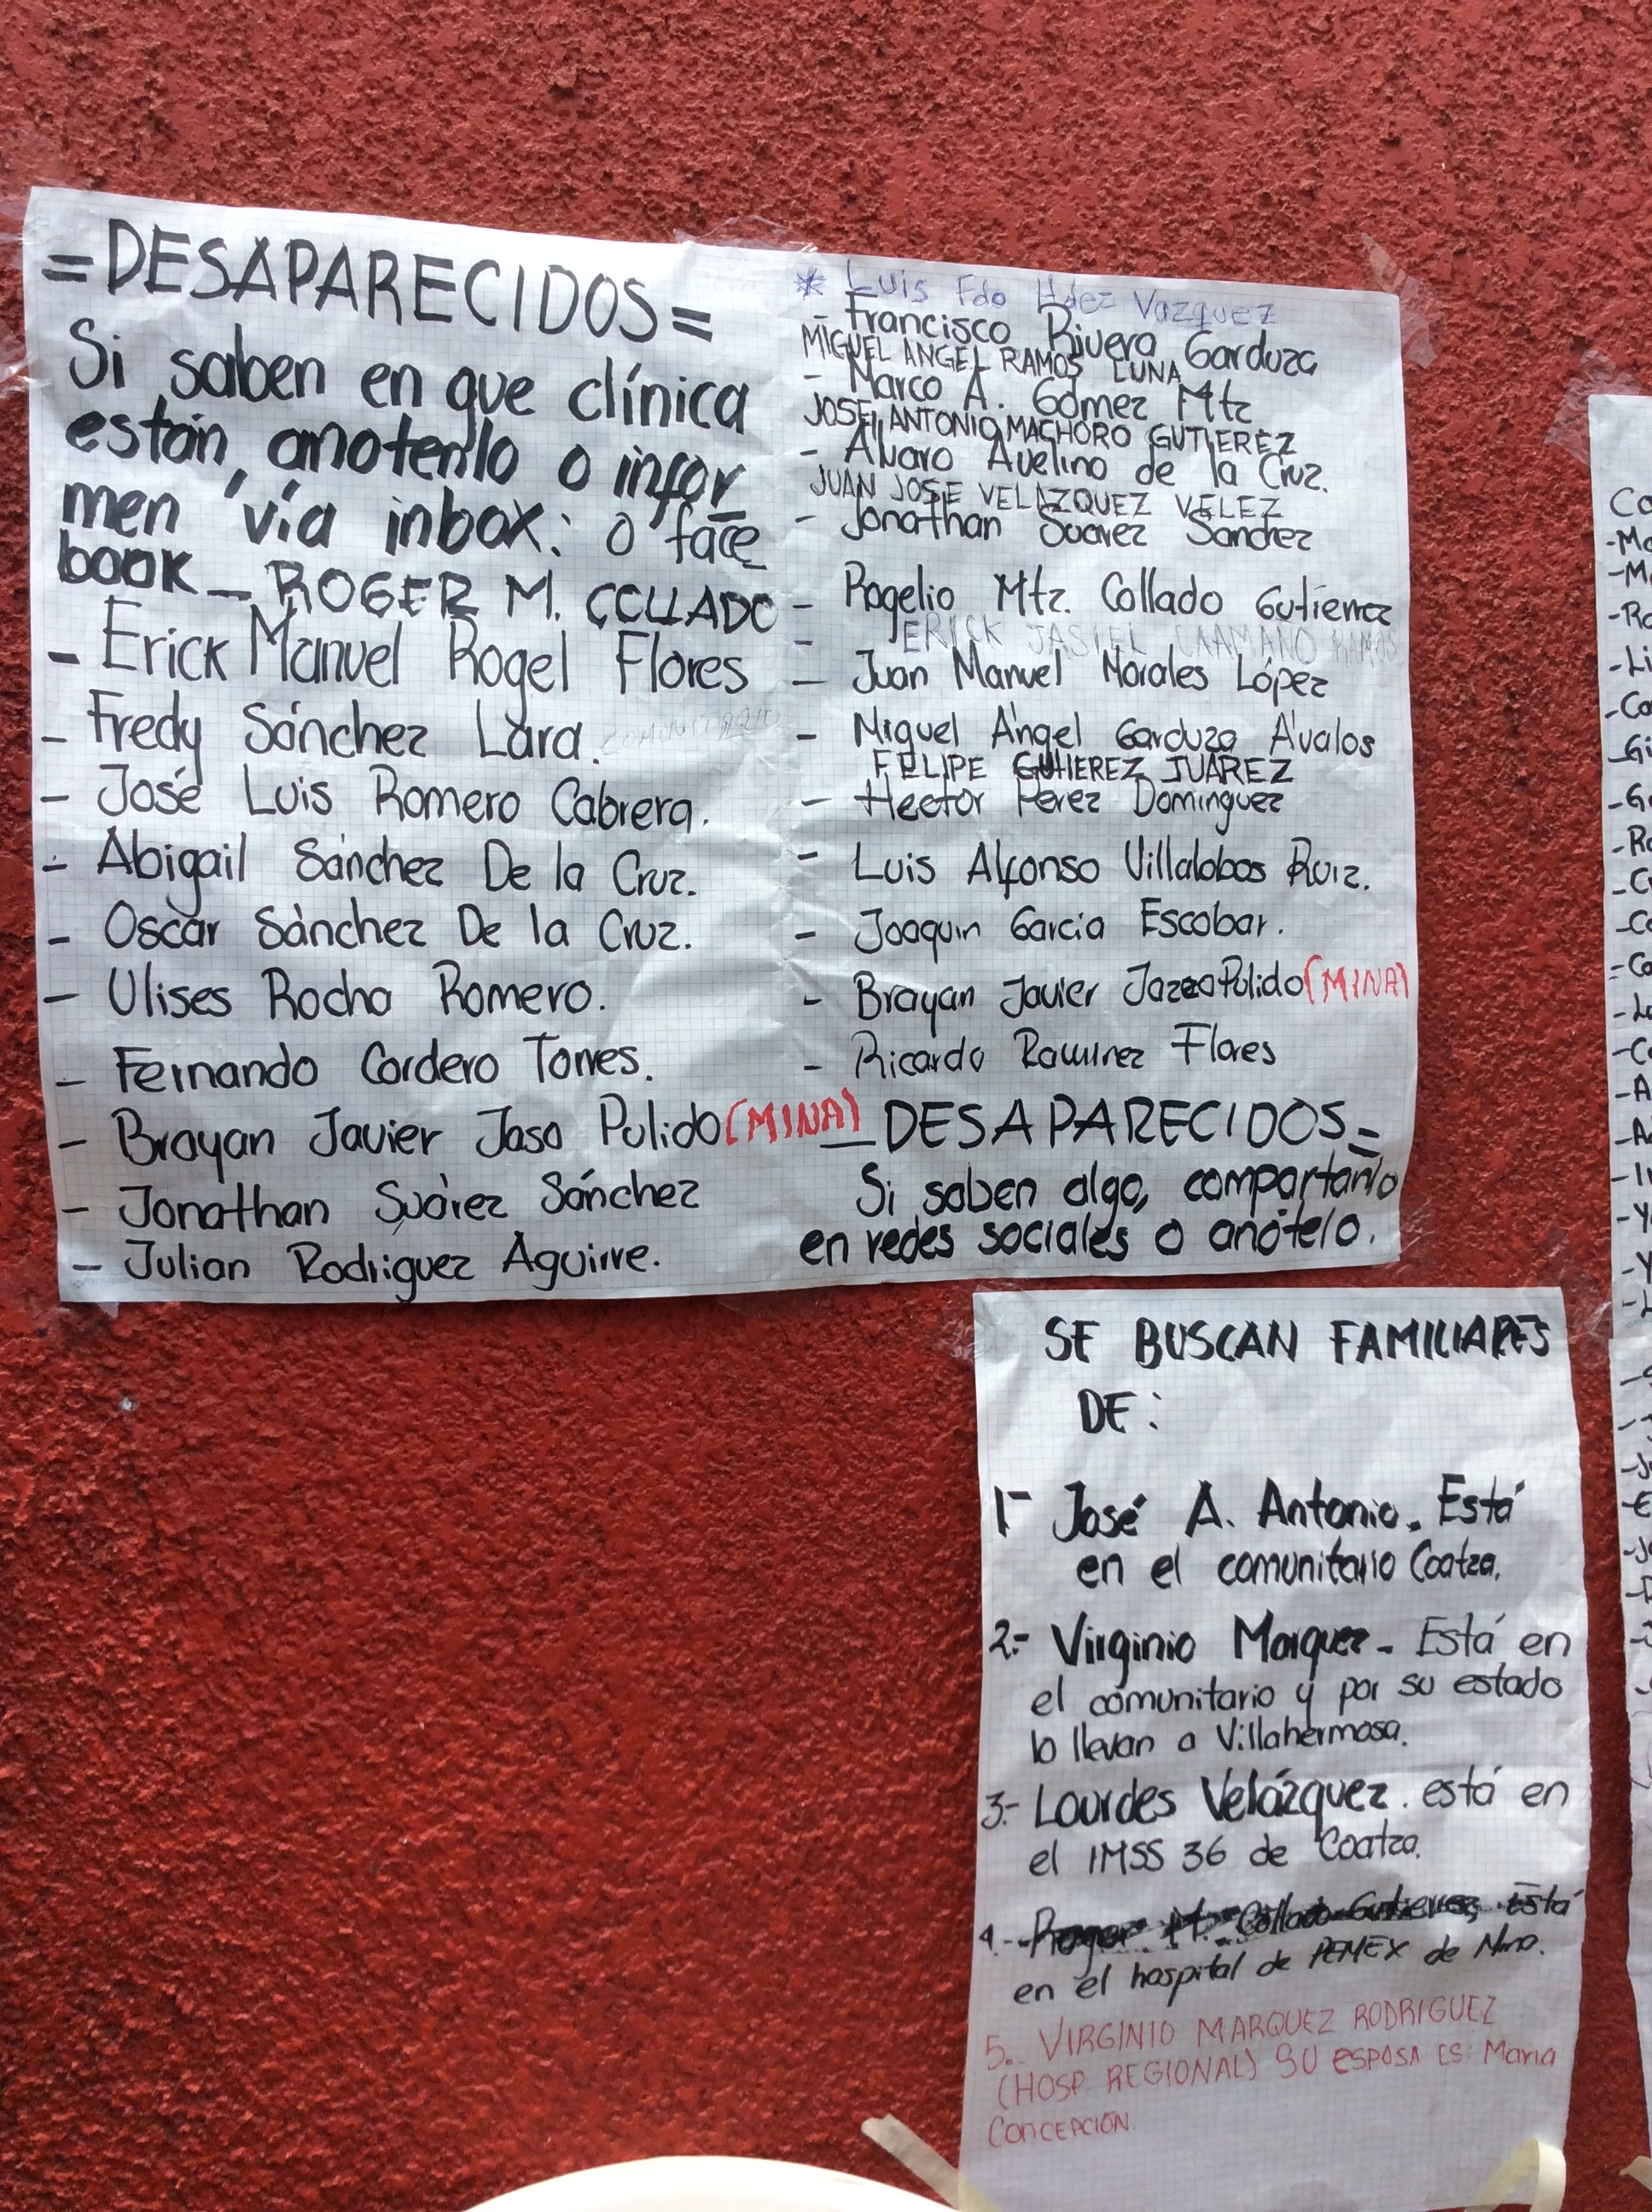 =DESAPARECIDOS=
Si saben en que clínica
están, anotenlo o infor
men vía inbox: o face
book_ ROGER M. COLLADO
- Erick Manuel Rogel Flores
- Fredy Sánchez Lara. COMUNITARIO
- José Luis Romero Cabrera.
- Abigail Sánchez De la Cruz.
- Oscar Sánchez De la Cruz.
- Ulises Rocha Romero.
- Fernando Cordero Torres.
- Brayan Javier Jaso Pulido (MINA)
- Jonathan Suárez Sánchez
- Julian Rodriguez Aguirre.
* Luis Fdo Hdez Vazquez
- Francisco Rivera Garduza
MIGUEL ANGEL RAMOS LUNA
- Marco A. Gómez Mtz
JOSE ANTONIO MACHORO GUTIEREZ
- Alvaro Avelino de la Cruz.
JUAN JOSE VELAZQUEZ VELEZ
- Jonathan Suarez Sanchez
- Rogelio Mtz. Collado Gutiérrez
- ERICK JASIEL CAAMAÑO RAMOS
- Juan Manuel Morales López
- Miguel Ángel Garduza Ávalos
FELIPE GUTIEREZ JUAREZ
- Hector Perez Dominguez
- Luis Alfonso Villalobos Ruiz.
- Joaquin Garcia Escobar.
- Brayan Javier Pulido (MINA)
- Ricardo Ramirez Flores
_DESAPARECIDOS=
Si saben algo, compartanlo
en redes sociales o anótelo.
SE BUSCAN FAMILIARES
DE:
1- José A. Antonio. Está
en el comunitario Coatza.
2.- Virginio Marquez - Está en
el comunitario y por su estado
lo llevan a Villahermosa.
3.- Lourdes Velázquez. está en
el IMSS 36 de Coatza.
4.- Roger M. Collado Gutierrez, Está
en el hospital de PEMEX de Mina.
5. VIRGINIO MARQUEZ RODRIGUEZ
(HOSP REGIONAL) SU ESPOSA ES: Maria
CONCEPCIÓN.